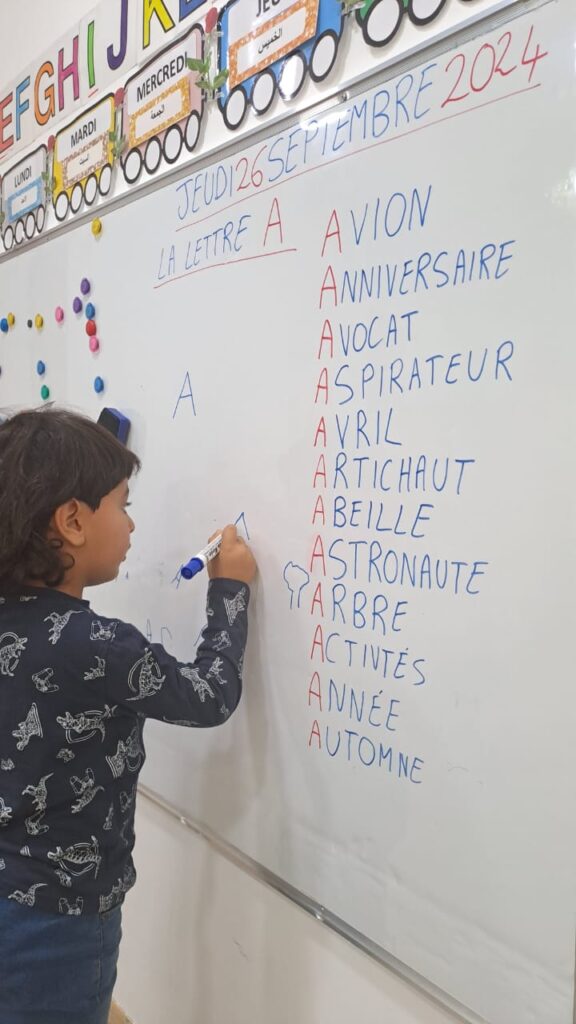 EFGHIJK
LUNDI
MARDI
السبت
MERCREDI
الجمعة
JEU
الخميس
JEUDI 26 SEPTEMBRE 2024
LA LETTRE A
AVION
ANNIVERSAIRE
AVOCAT
ASPIRATEUR
AVRIL
ARTICHAUT
ABEILLE
ASTRONAUTE
ARBRE
ACTIVITÉS
ANNÉE
AUTOMNE
A